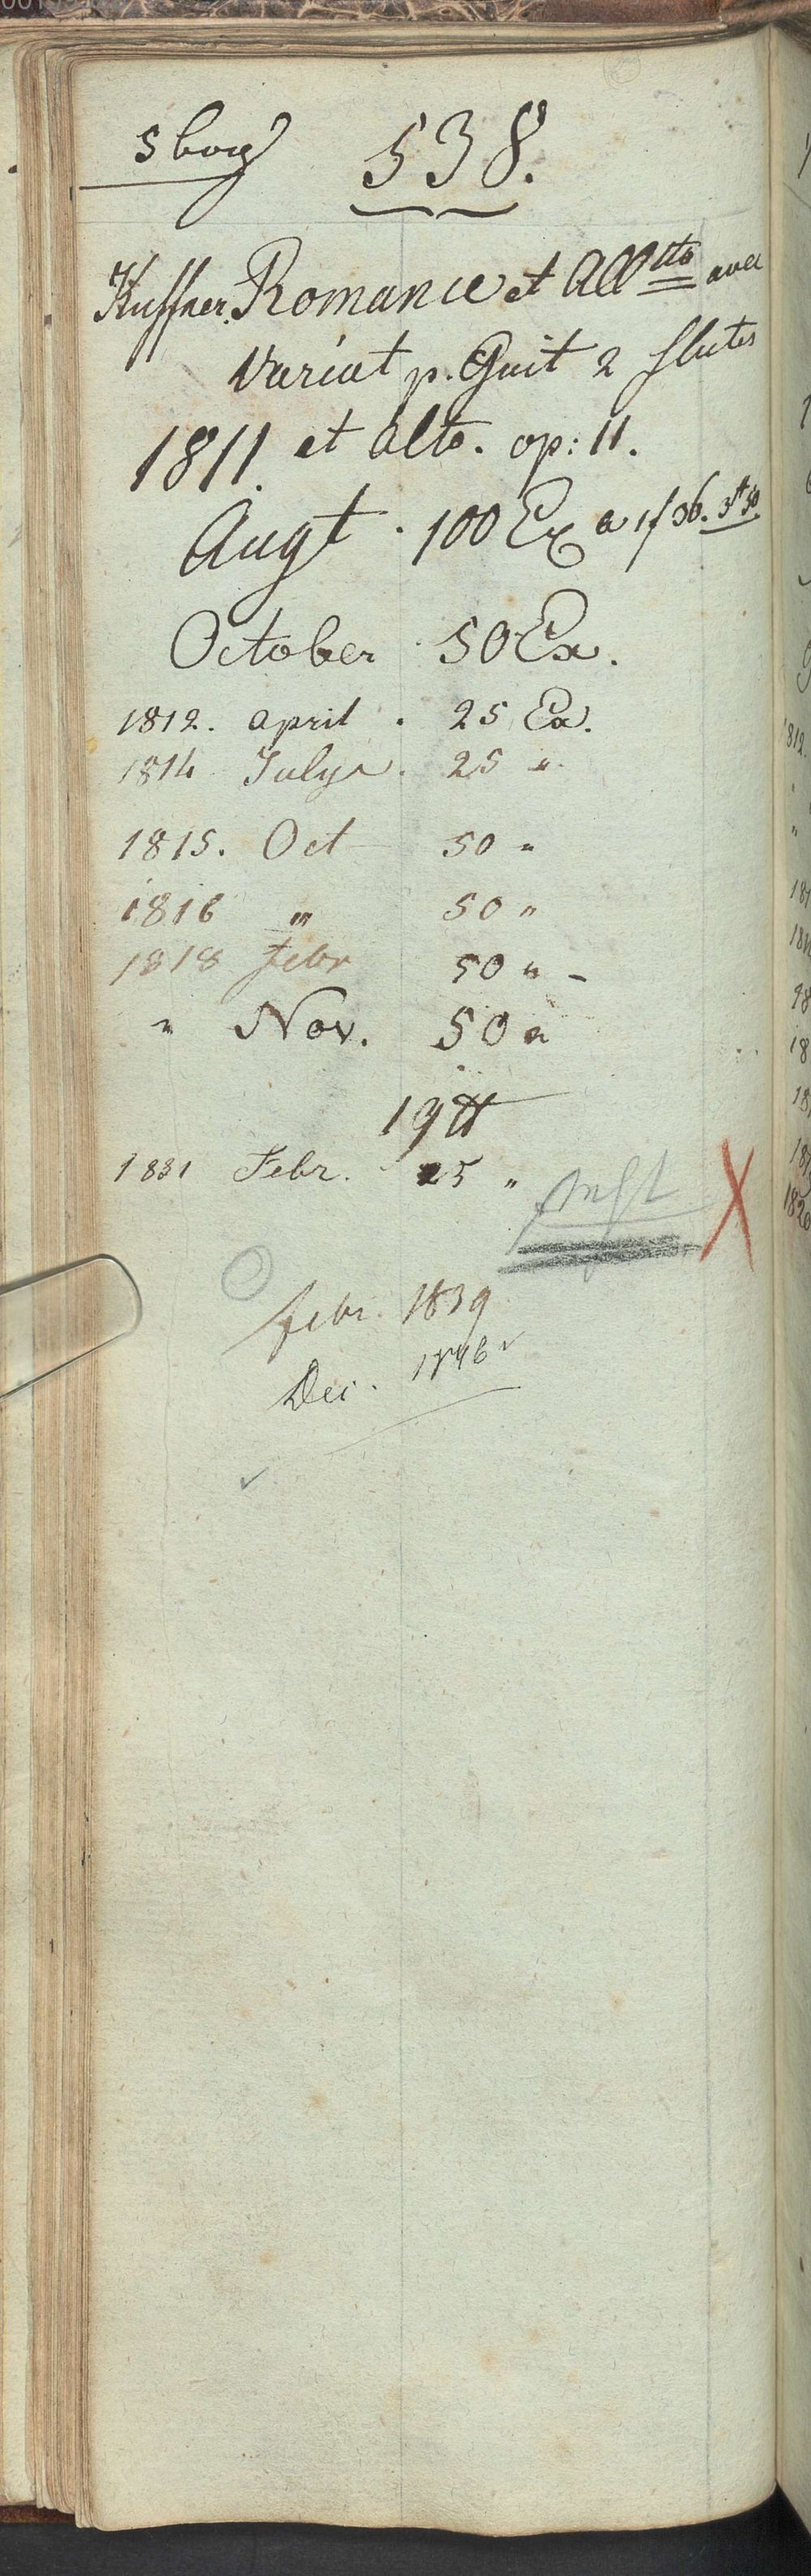 5 bog 538.
Kuffner. Romance et All tto avec
Variat p. Guit 2 flutes
1811. et alto. op: 11.
Augt. 100 Ex a 1f 36.
October 50 Ex.
1812. april. 25 Ex.
1814 July. 25 "
1815. Oct 50 "
1816 " 50 "
1818 febr 50 " -
" Nov. 50 "
19
1831 Febr. 25 "
febr. 1839
Dec. 1846